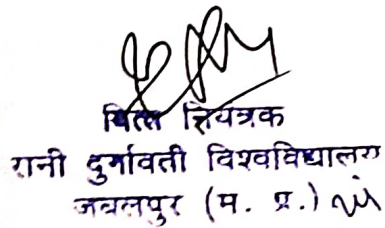 वित्त नियंत्रक
रानी दुर्गावती विश्वविद्यालय
जबलपुर (म. प्र.)